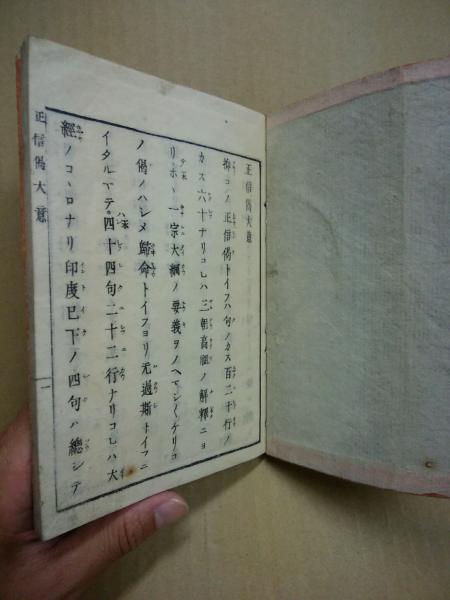 正信偈大意
抑コノ正信偈トイフハ句ノカス百二十行ノ
カス六十ナリコレハ三朝高祖ノ解釋ニヨ
リホヽ一宗大綱ノ要義ヲノヘマシ〳〵ケリコ
ノ偈ノハシメ歸命トイフヨリ无過斯トイフニ
イタルマテ四十四句二十二行ナリコレハ大
經ノコヽロナリ印度已下ノ四句ハ總シテ
正信偈大意
一